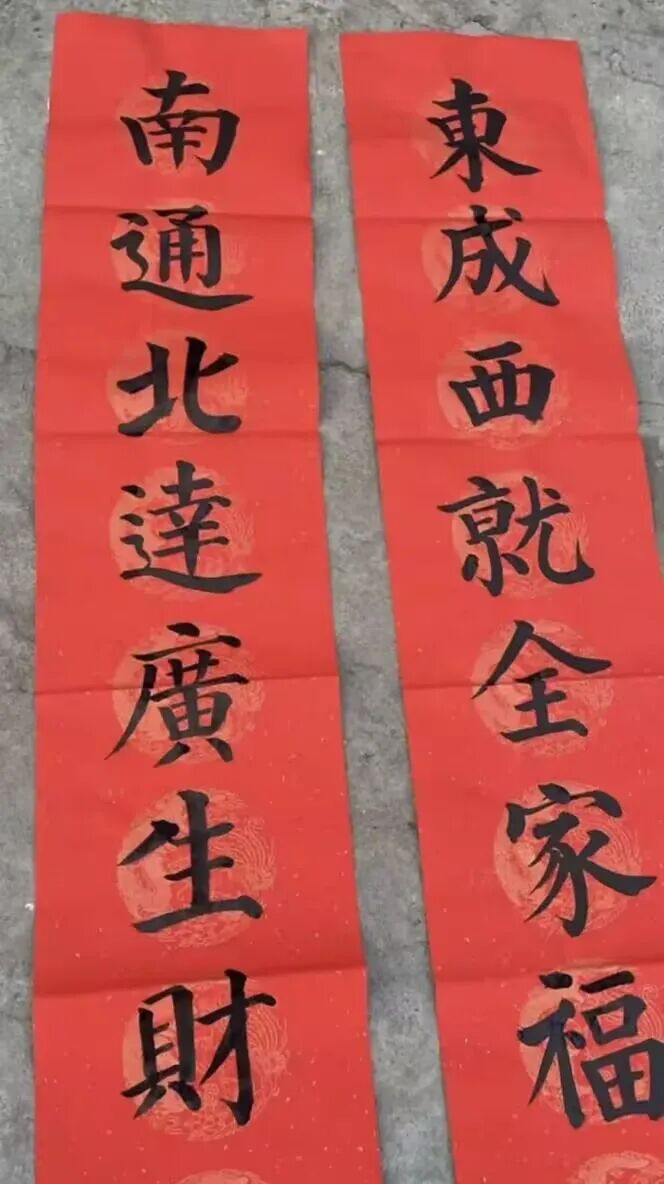 東成西就全家福
南通北達廣生財